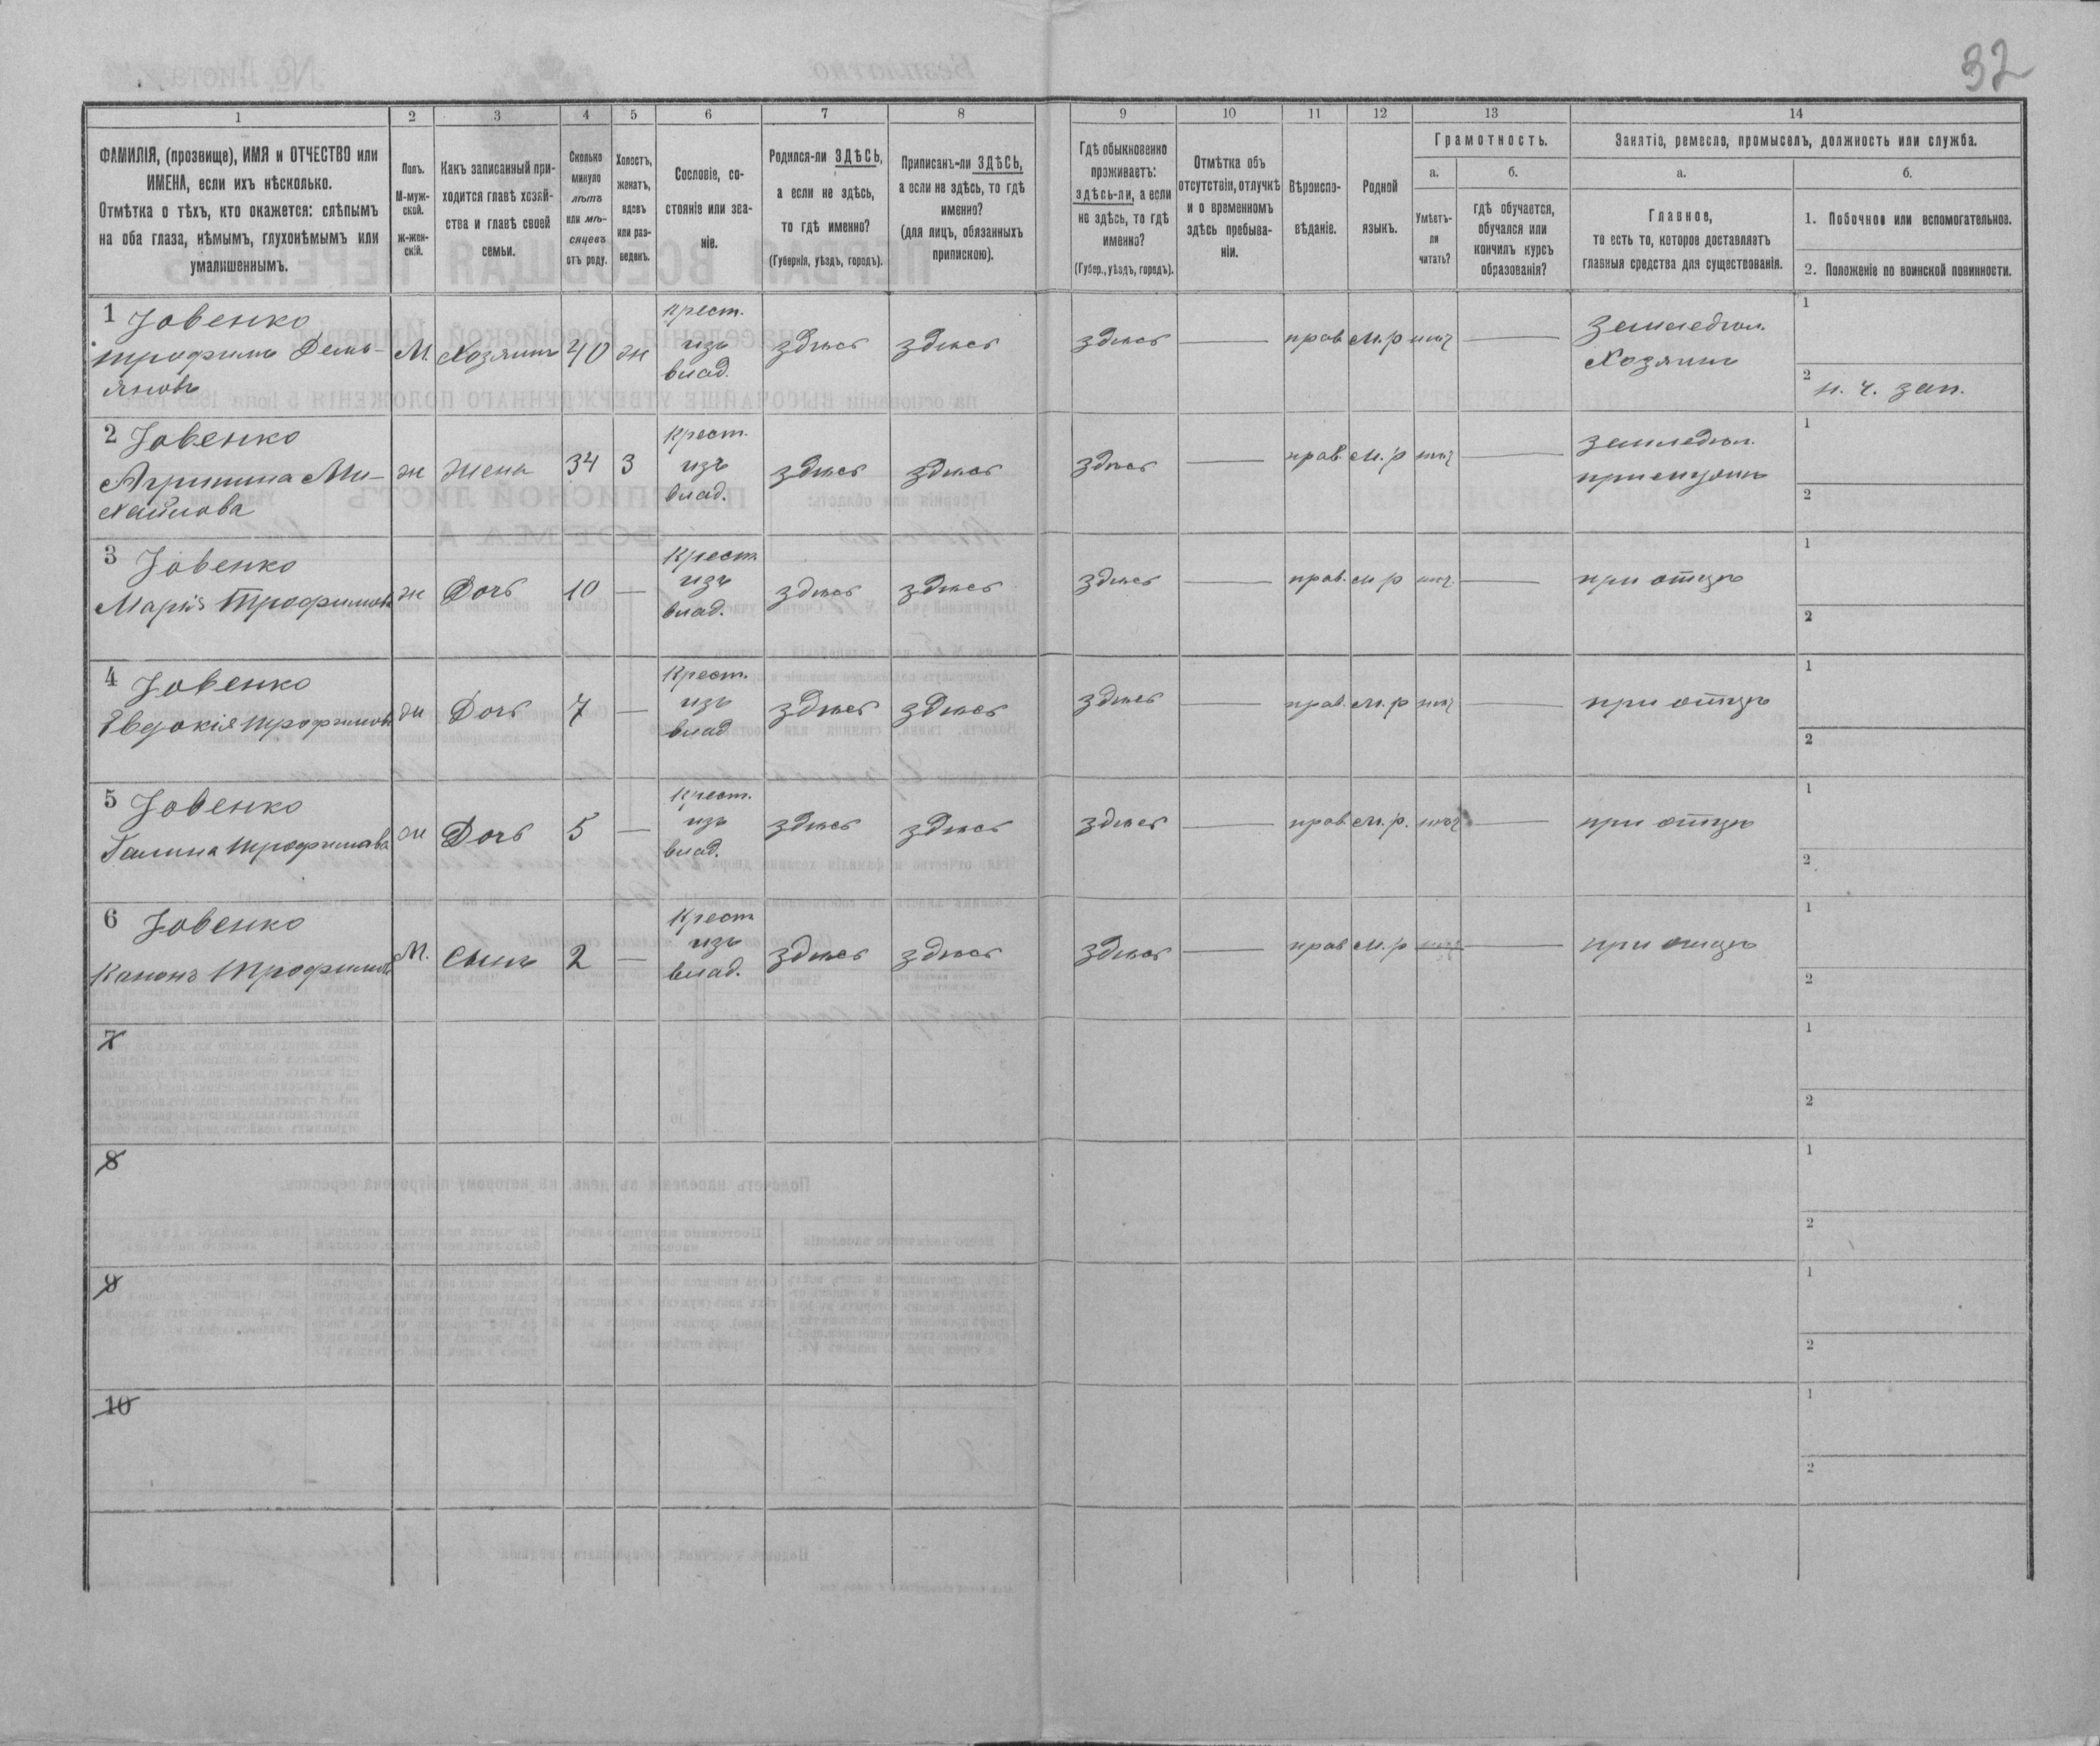 32
1 2 3 4 5 6 7 8 9 10 11 12 13 14
ФАМИЛІЯ, (прозвище), ИМЯ и ОТЧЕСТВО или
ИМЕНА, если ихъ нѣсколько.
Отмѣтка о тѣхъ, кто окажется: слѣпымъ
на оба глаза, нѣмымъ, глухонѣмымъ или
умалишеннымъ.
Полъ.
М-муж-
ской.
ж-жен-
скій.
Какъ записанный при-
ходится главѣ хозяй-
ства и главѣ своей
семьи.
Сколько
минуло
лѣтъ
или мѣ-
сяцевъ
отъ роду.
Холостъ,
женатъ,
вдовъ
или раз-
веденъ.
Сословіе, со-
стояніе или зва-
ніе.
Родился-ли ЗДѢСЬ,
а если не здѣсь,
то гдѣ именно?
(Губернія, уѣздъ, городъ).
Приписанъ-ли ЗДѢСЬ,
а если не здѣсь, то гдѣ
именно?
(для лицъ, обязанныхъ
припискою).
Гдѣ обыкновенно
проживаетъ:
здѣсь-ли, а если
не здѣсь, то гдѣ
именно?
(Губер., уѣздъ, городъ).
Отмѣтка объ
отсутствіи, отлучкѣ
и о временномъ
здѣсь пребыва-
ніи.
Вѣроиспо-
вѣданіе.
Родной
языкъ.
Грамотность.
а.
Умѣетъ-
ли
читать?
б.
гдѣ обучается,
обучался или
кончилъ курсъ
образованія?
Занятіе, ремесло, промыселъ, должность или служба.
а.
Главное,
то есть то, которое доставляетъ
главныя средства для существованія.
б.
1. Побочное или вспомогательное.
2. Положеніе по воинской повинности.
1 Ювенко
Трофимъ Демь-
яновъ
М. Хозяинъ 40 ж
крест.
изъ
влад.
здѣсь здѣсь здѣсь — прав. м.р нѣт —
земледѣл.
Хозяинъ
1
2 н. ч. зап.
2 Ювенко
Агрипина Ми-
хайлова
ж жена 34 з
крест.
изъ
влад.
здѣсь здѣсь здѣсь — прав. м.р нѣт —
земледѣл.
при мужѣ
1
2
3 Ювенко
Марія Трофимова
ж Дочь 10 —
крест
изъ
влад.
здѣсь здѣсь здѣсь — прав. м р нѣт —
при отцѣ
1
2
4 Ювенко
Евдокія Трофимова
ж Дочь 7 —
крест.
изъ
влад
здѣсь здѣсь здѣсь — прав. м.р нѣт —
при отцѣ
1
2
5 Ювенко
Галина Трофимова
ж Дочь 5 —
крест.
изъ
влад.
здѣсь здѣсь здѣсь — прав. м.р. нѣт —
при отцѣ
1
2
6 Ювенко
Кононъ Трофимов
М. Сынъ 2 —
крест
изъ
влад.
здѣсь здѣсь здѣсь — прав м.р —
при отцѣ
1
2
7
1
2
8
1
2
9
1
2
10
1
2